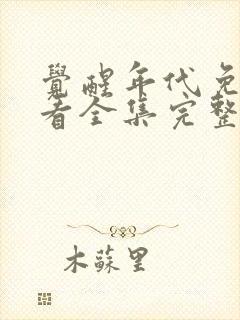 覺醒年代免
看全集完整
木蘇里